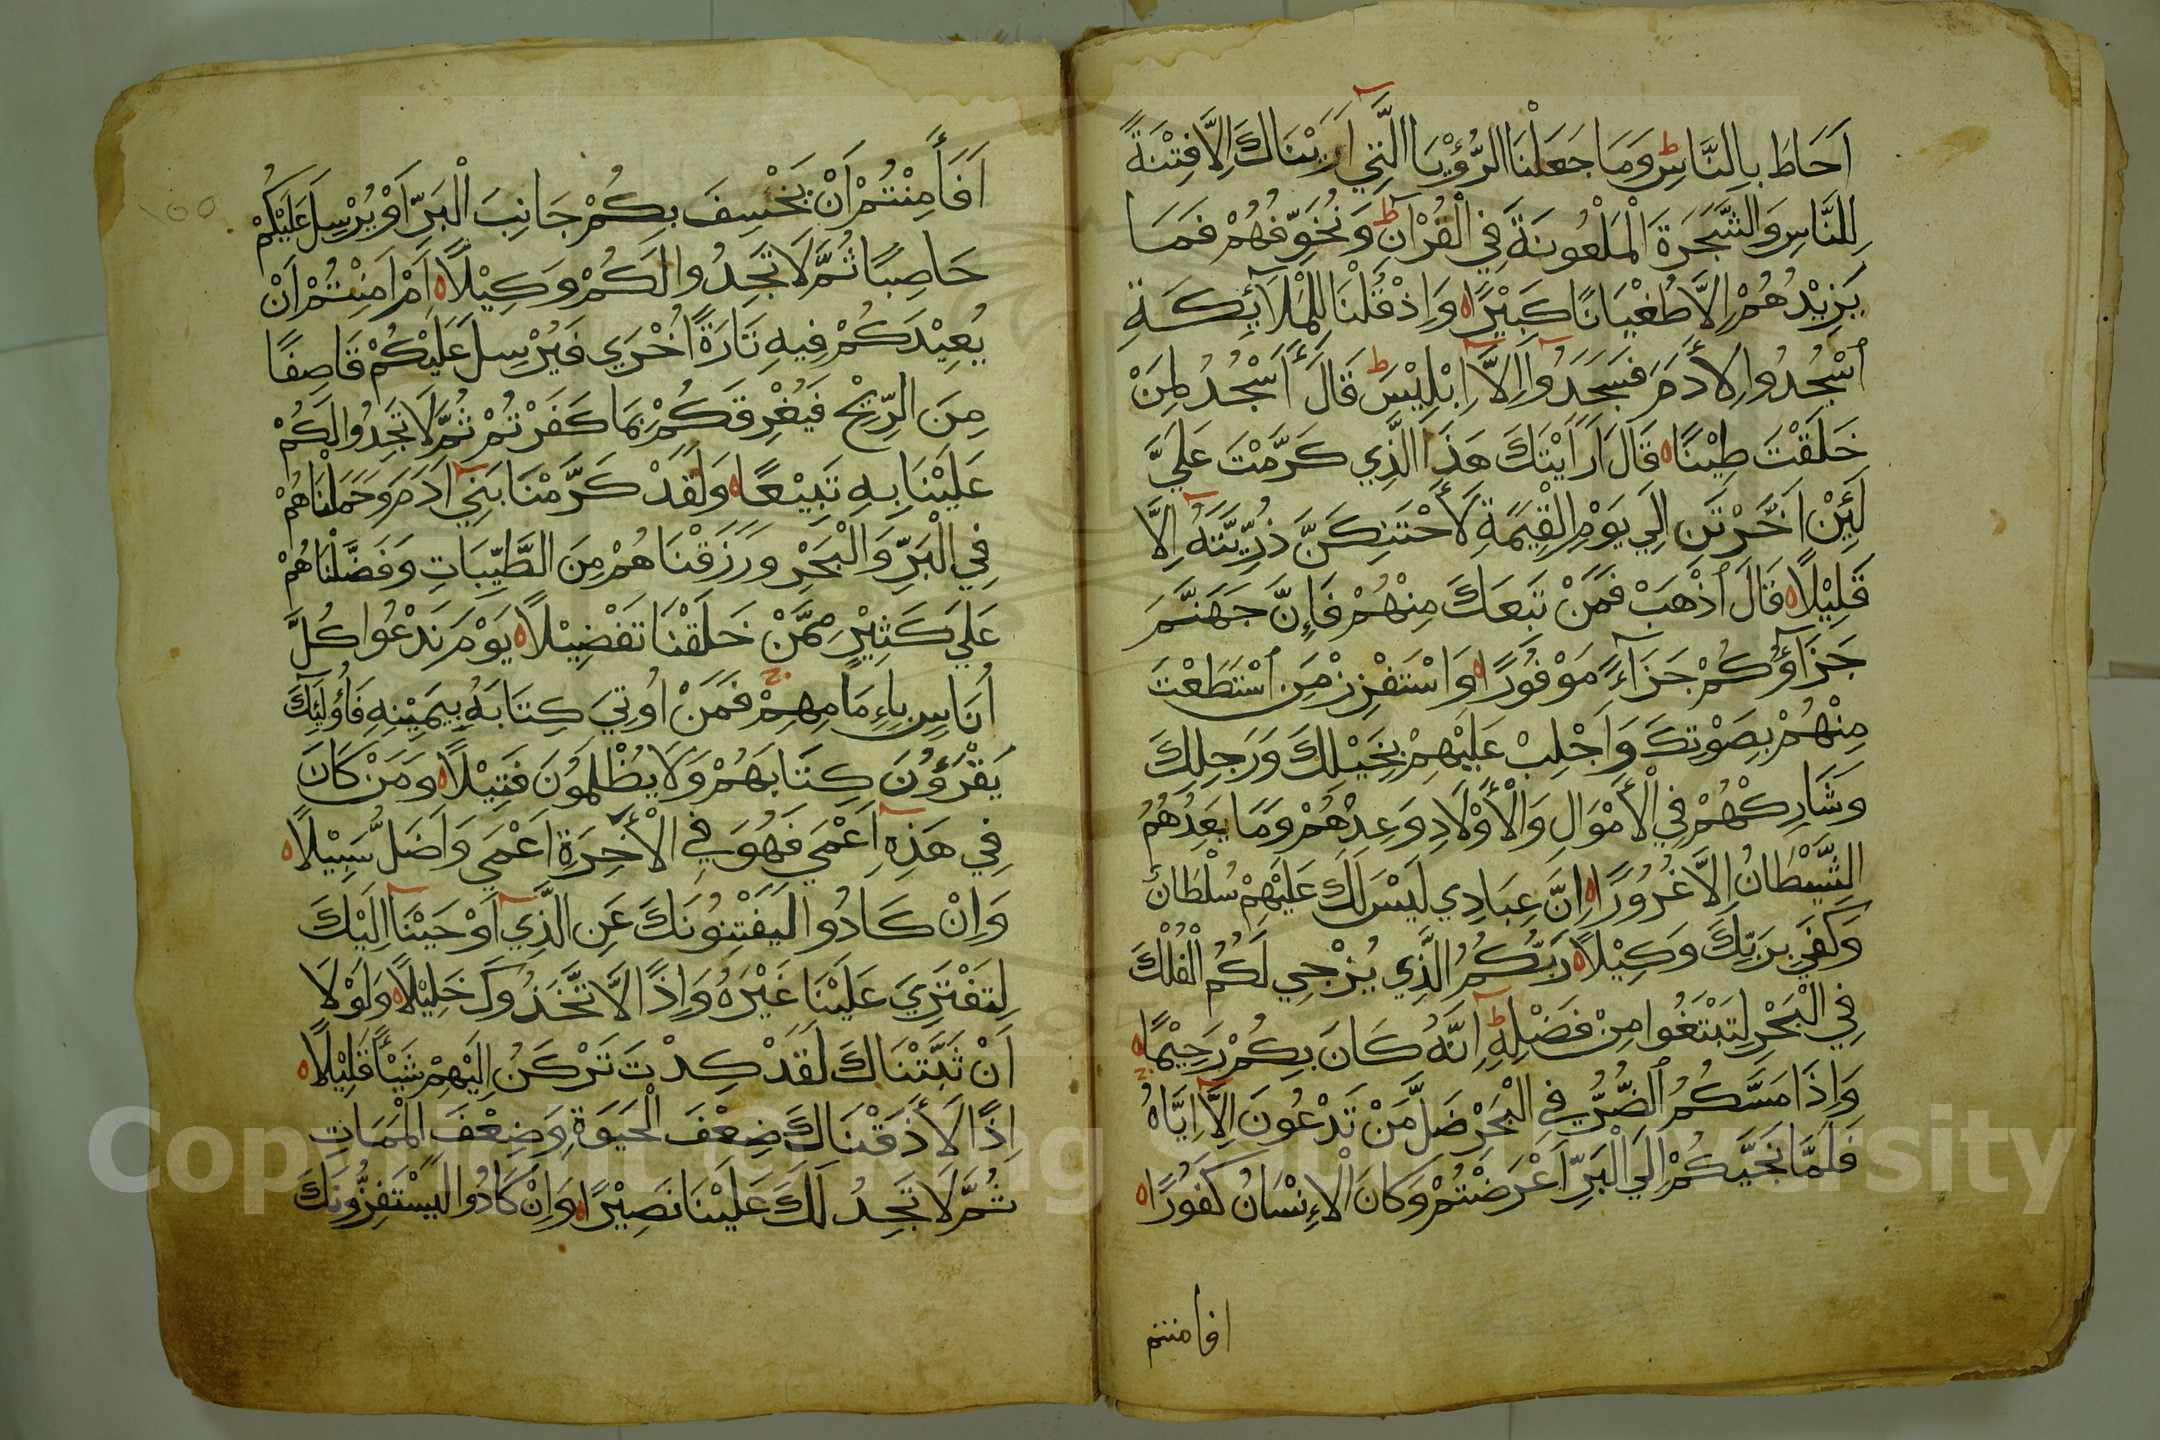 اَحَاطَ بِالنَّاسِ ط وَمَا جَعَلْنَا الرُّؤْيَا الَّتِي اَرَيْنَاكَ اِلَّا فِتْنَةً
لِلنَّاسِ وَالشَّجَرَةَ الْمَلْعُونَةَ فِي الْقُرْاٰنِ ط وَنُخَوِّفُهُمْ فَمَا
يَزِيْدُهُمْ اِلَّا طُغْيَانًا كَبِيْرًا ه وَاِذْ قُلْنَا لِلْمَلَآئِكَةِ
اسْجُدُوا لِأَدَمَ فَسَجَدُوا اِلَّا اِبْلِيْسَ ط قَالَ ءَاَسْجُدُ لِمَنْ
خَلَقْتَ طِيْنًا ه قَالَ اَرَاَيْتَكَ هَذَا الَّذِي كَرَّمْتَ عَلَيَّ
لَئِنْ اَخَّرْتَنِ اِلَي يَوْمِ الْقِيٰمَةِ لَأَحْتَنِكَنَّ ذُرِّيَّتَهُ اِلَّا
قَلِيْلًا ه قَالَ اذْهَبْ فَمَنْ تَبِعَكَ مِنْهُمْ فَاِنَّ جَهَنَّمَ
جَزَآؤُكُمْ جَزَآءً مَوْفُورًا ه وَاسْتَفْزِزْ مَنِ اسْتَطَعْتَ
مِنْهُمْ بِصَوْتِكَ وَاَجْلِبْ عَلَيْهِمْ بِخَيْلِكَ وَرَجِلِكَ
وَشَارِكْهُمْ فِي الْأَمْوَالِ وَالْأَوْلَادِ وَعِدْهُمْ وَمَا يَعِدُهُمُ
الشَّيْطَانُ اِلَّا غُرُورًا ه اِنَّ عِبَادِي لَيْسَ لَكَ عَلَيْهِمْ سُلْطَانٌ
وَكَفَي بِرَبِّكَ وَكِيْلًا ه رَبُّكُمُ الَّذِي يُزْجِي لَكُمُ الْفُلْكَ
فِي الْبَحْرِ لِتَبْتَغُوا مِنْ فَضْلِهِ ط اِنَّهُ كَانَ بِكُمْ رَحِيْمًا ه
وَاِذَا مَسَّكُمُ الضُّرُّ فِي الْبَحْرِ ضَلَّ مَنْ تَدْعُونَ اِلَّا اِيَّاهُ
فَلَمَّا نَجَّيكُمْ اِلَي الْبَرِّ اَعْرَضْتُمْ وَكَانَ الْاِنْسَانُ كَفُورًا ه
افامنتم
اَفَأَمِنْتُمْ اَنْ يَخْسِفَ بِكُمْ جَانِبَ الْبَرِّ اَوْ يُرْسِلَ عَلَيْكُمْ
حَاصِبًا ثُمَّ لَا تَجِدُوا لَكُمْ وَكِيْلًا ه اَمْ اَمِنْتُمْ اَنْ
يُعِيْدَكُمْ فِيهِ تَارَةً اُخْرَي فَيُرْسِلَ عَلَيْكُمْ قَاصِفًا
مِنَ الرِّيْحِ فَيُغْرِقَكُمْ بِمَا كَفَرْتُمْ ثُمَّ لَا تَجِدُوا لَكُمْ
عَلَيْنَا بِهِ تَبِيْعًا ه وَلَقَدْ كَرَّمْنَا بَنِي اَدَمَ وَحَمَلْنَاهُمْ
فِي الْبَرِّ وَالْبَحْرِ وَرَزَقْنَاهُمْ مِنَ الطَّيِّبَاتِ وَفَضَّلْنَاهُمْ
عَلَي كَثِيْرٍ مِمَّنْ خَلَقْنَا تَفْضِيْلًا ه يَوْمَ نَدْعُوا كُلَّ
اُنَاسٍ بِاِمَامِهِمْ ج فَمَنْ اُوتِيَ كِتَابَهُ بِيَمِيْنِهِ فَأُولَئِكَ
يَقْرَؤُنَ كِتَابَهُمْ وَلَا يُظْلَمُونَ فَتِيْلًا ه وَمَنْ كَانَ
فِي هَذِهِ اَعْمَي فَهُوَ فِي الْأَخِرَةِ اَعْمَي وَاَضَلُّ سَبِيْلًا ه
وَاِنْ كَادُوا لَيَفْتِنُونَكَ عَنِ الَّذِي اَوْحَيْنَا اِلَيْكَ
لِتَفْتَرِيَ عَلَيْنَا غَيْرَهُ وَاِذًا لَاتَّخَذُوكَ خَلِيْلًا ه وَلَوْلَا
اَنْ ثَبَّتْنَاكَ لَقَدْ كِدْتَ تَرْكَنُ اِلَيْهِمْ شَيْئًا قَلِيْلًا ه
اِذًا لَأَذَقْنَاكَ ضِعْفَ الْحَيَوةِ وَضِعْفَ الْمَمَاتِ
ثُمَّ لَا تَجِدُ لَكَ عَلَيْنَا نَصِيْرًا ه وَاِنْ كَادُوا لَيَسْتَفِزُّونَكَ
Copyright © King Saud University